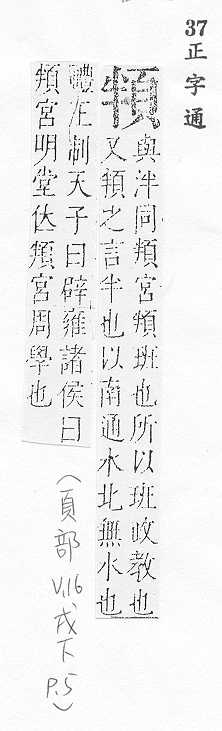 37 正字通
頖
與泮同頖宮頖班也所以班政教也
又頖之言半也以南通水北無水也
禮王制天子曰辟雍諸侯曰
頖宮明堂位頖宮周學也
(頁部 V.16 戌下 P.5)